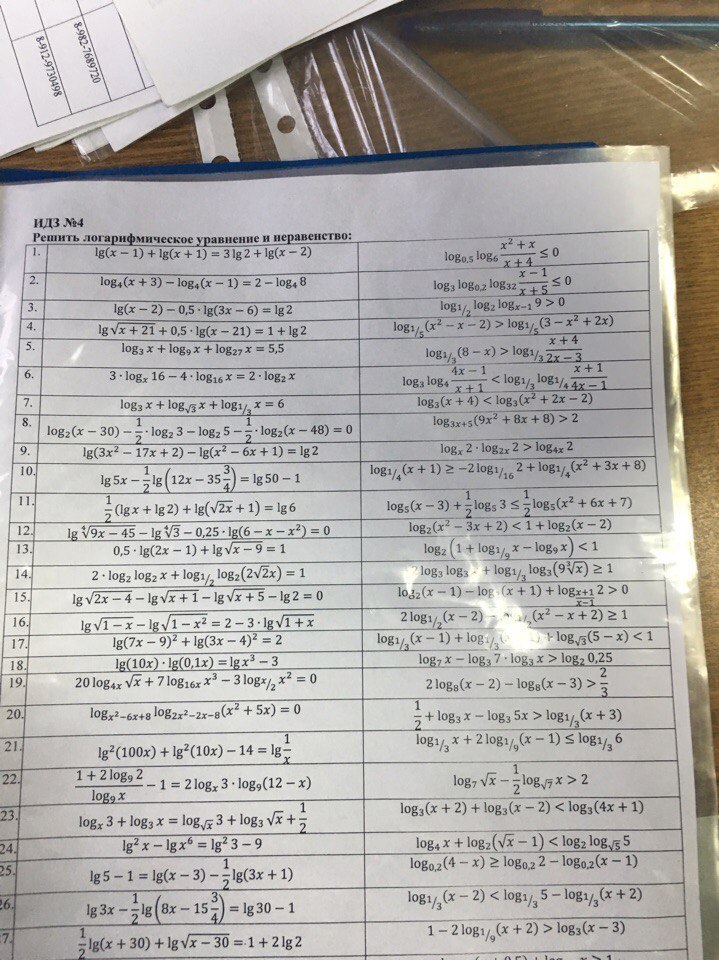 8-982-7689720
8-912-9730498
ИДЗ №4
Решить логарифмическое уравнение и неравенство:
1. lg(x − 1) + lg(x + 1) = 3 lg 2 + lg(x − 2) log₀,₅ log₆ (x² + x)/(x + 4) ≤ 0
2. log₄(x + 3) − log₄(x − 1) = 2 − log₄ 8 log₃ log₀,₂ log₃₂ (x − 1)/(x + 5) ≤ 0
3. lg(x − 2) − 0,5 · lg(3x − 6) = lg 2 log₁/₂ log₂ logₓ₋₁ 9 > 0
4. lg √(x + 21) + 0,5 · lg(x − 21) = 1 + lg 2 log₁/₅(x² − x − 2) > log₁/₅(3 − x² + 2x)
5. log₃ x + log₉ x + log₂₇ x = 5,5 log₁/₃(8 − x) > log₁/₃ (x + 4)/(2x − 3)
6. 3 · logₓ 16 − 4 · log₁₆ x = 2 · log₂ x log₃ log₄ (4x − 1)/(x + 1) < log₁/₃ log₁/₄ (x + 1)/(4x − 1)
7. log₃ x + log_√3 x + log₁/₃ x = 6 log₃(x + 4) < log₃(x² + 2x − 2)
8. log₂(x − 30) − 1/2 · log₂ 3 − log₂ 5 − 1/2 · log₂(x − 48) = 0 log₃ₓ₊₅(9x² + 8x + 8) > 2
9. lg(3x² − 17x + 2) − lg(x² − 6x + 1) = lg 2 logₓ 2 · log₂ₓ 2 > log₄ₓ 2
10. lg 5x − 1/2 lg(12x − 35 3/4) = lg 50 − 1 log₁/₄(x + 1) ≥ −2 log₁/₁₆ 2 + log₁/₄(x² + 3x + 8)
11. 1/2 (lg x + lg 2) + lg(√2x + 1) = lg 6 log₅(x − 3) + 1/2 log₅ 3 ≤ 1/2 log₅(x² + 6x + 7)
12. lg ⁴√(9x − 45) − lg ⁴√3 − 0,25 · lg(6 − x − x²) = 0 log₂(x² − 3x + 2) < 1 + log₂(x − 2)
13. 0,5 · lg(2x − 1) + lg √(x − 9) = 1 log₂(1 + log₁/₉ x − log₉ x) < 1
14. 2 · log₂ log₂ x + log₁/₂ log₂(2√2x) = 1 log₃ log₃ x + log₁/₃ log₃(9 ³√x) ≥ 1
15. lg √(2x − 4) − lg √(x + 1) − lg √(x + 5) − lg 2 = 0 (x − 1) − (x + 1) + log_(x+1)/(x−1) 2 > 0
16. lg √(1 − x) − lg √(1 − x²) = 2 − 3 · lg √(1 + x) 2 log₁/₂(x − 2) (x² − x + 2) ≥ 1
17. lg(7x − 9)² + lg(3x − 4)² = 2 log₁/₃(x − 1) + log₁/₃ + log_√3(5 − x) < 1
18. lg(10x) · lg(0,1x) = lg x³ − 3 log₇ x − log₃ 7 · log₃ x > log₂ 0,25
19. 20 log₄ₓ √x + 7 log₁₆ₓ x³ − 3 logₓ/₂ x² = 0 2 log₈(x − 2) − log₈(x − 3) > 2/3
20. log_(x²−6x+8) log_(2x²−2x−8)(x² + 5x) = 0 1/2 + log₃ x − log₃ 5x > log₁/₃(x + 3)
21. lg²(100x) + lg²(10x) − 14 = lg 1/x log₁/₃ x + 2 log₁/₉(x − 1) ≤ log₁/₃ 6
22. (1 + 2 log₉ 2)/(log₉ x) − 1 = 2 logₓ 3 · log₉(12 − x) log₇ √x − 1/2 log_√7 x > 2
23. logₓ 3 + log₃ x = log_√x 3 + log₃ √x + 1/2 log₃(x + 2) + log₃(x − 2) < log₃(4x + 1)
24. lg² x − lg x⁶ = lg² 3 − 9 log₄ x + log₂(√x − 1) < log₂ log_√5 5
25. lg 5 − 1 = lg(x − 3) − 1/2 lg(3x + 1) log₀,₂(4 − x) ≥ log₀,₂ 2 − log₀,₂(x − 1)
26. lg 3x − 1/2 lg(8x − 15 3/4) = lg 30 − 1 log₁/₃(x − 2) < log₁/₃ 5 − log₁/₃(x + 2)
7. 1/2 lg(x + 30) + lg √(x − 30) = 1 + 2 lg 2 1 − 2 log₁/₉(x + 2) > log₃(x − 3)